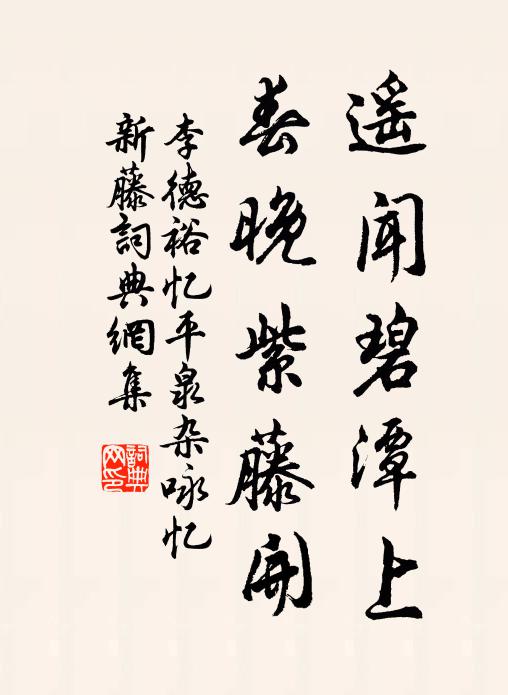 遥闻碧潭上
春晚紫藤開
李德裕忆平泉杂咏忆
新藤詞典網集
詞典网印